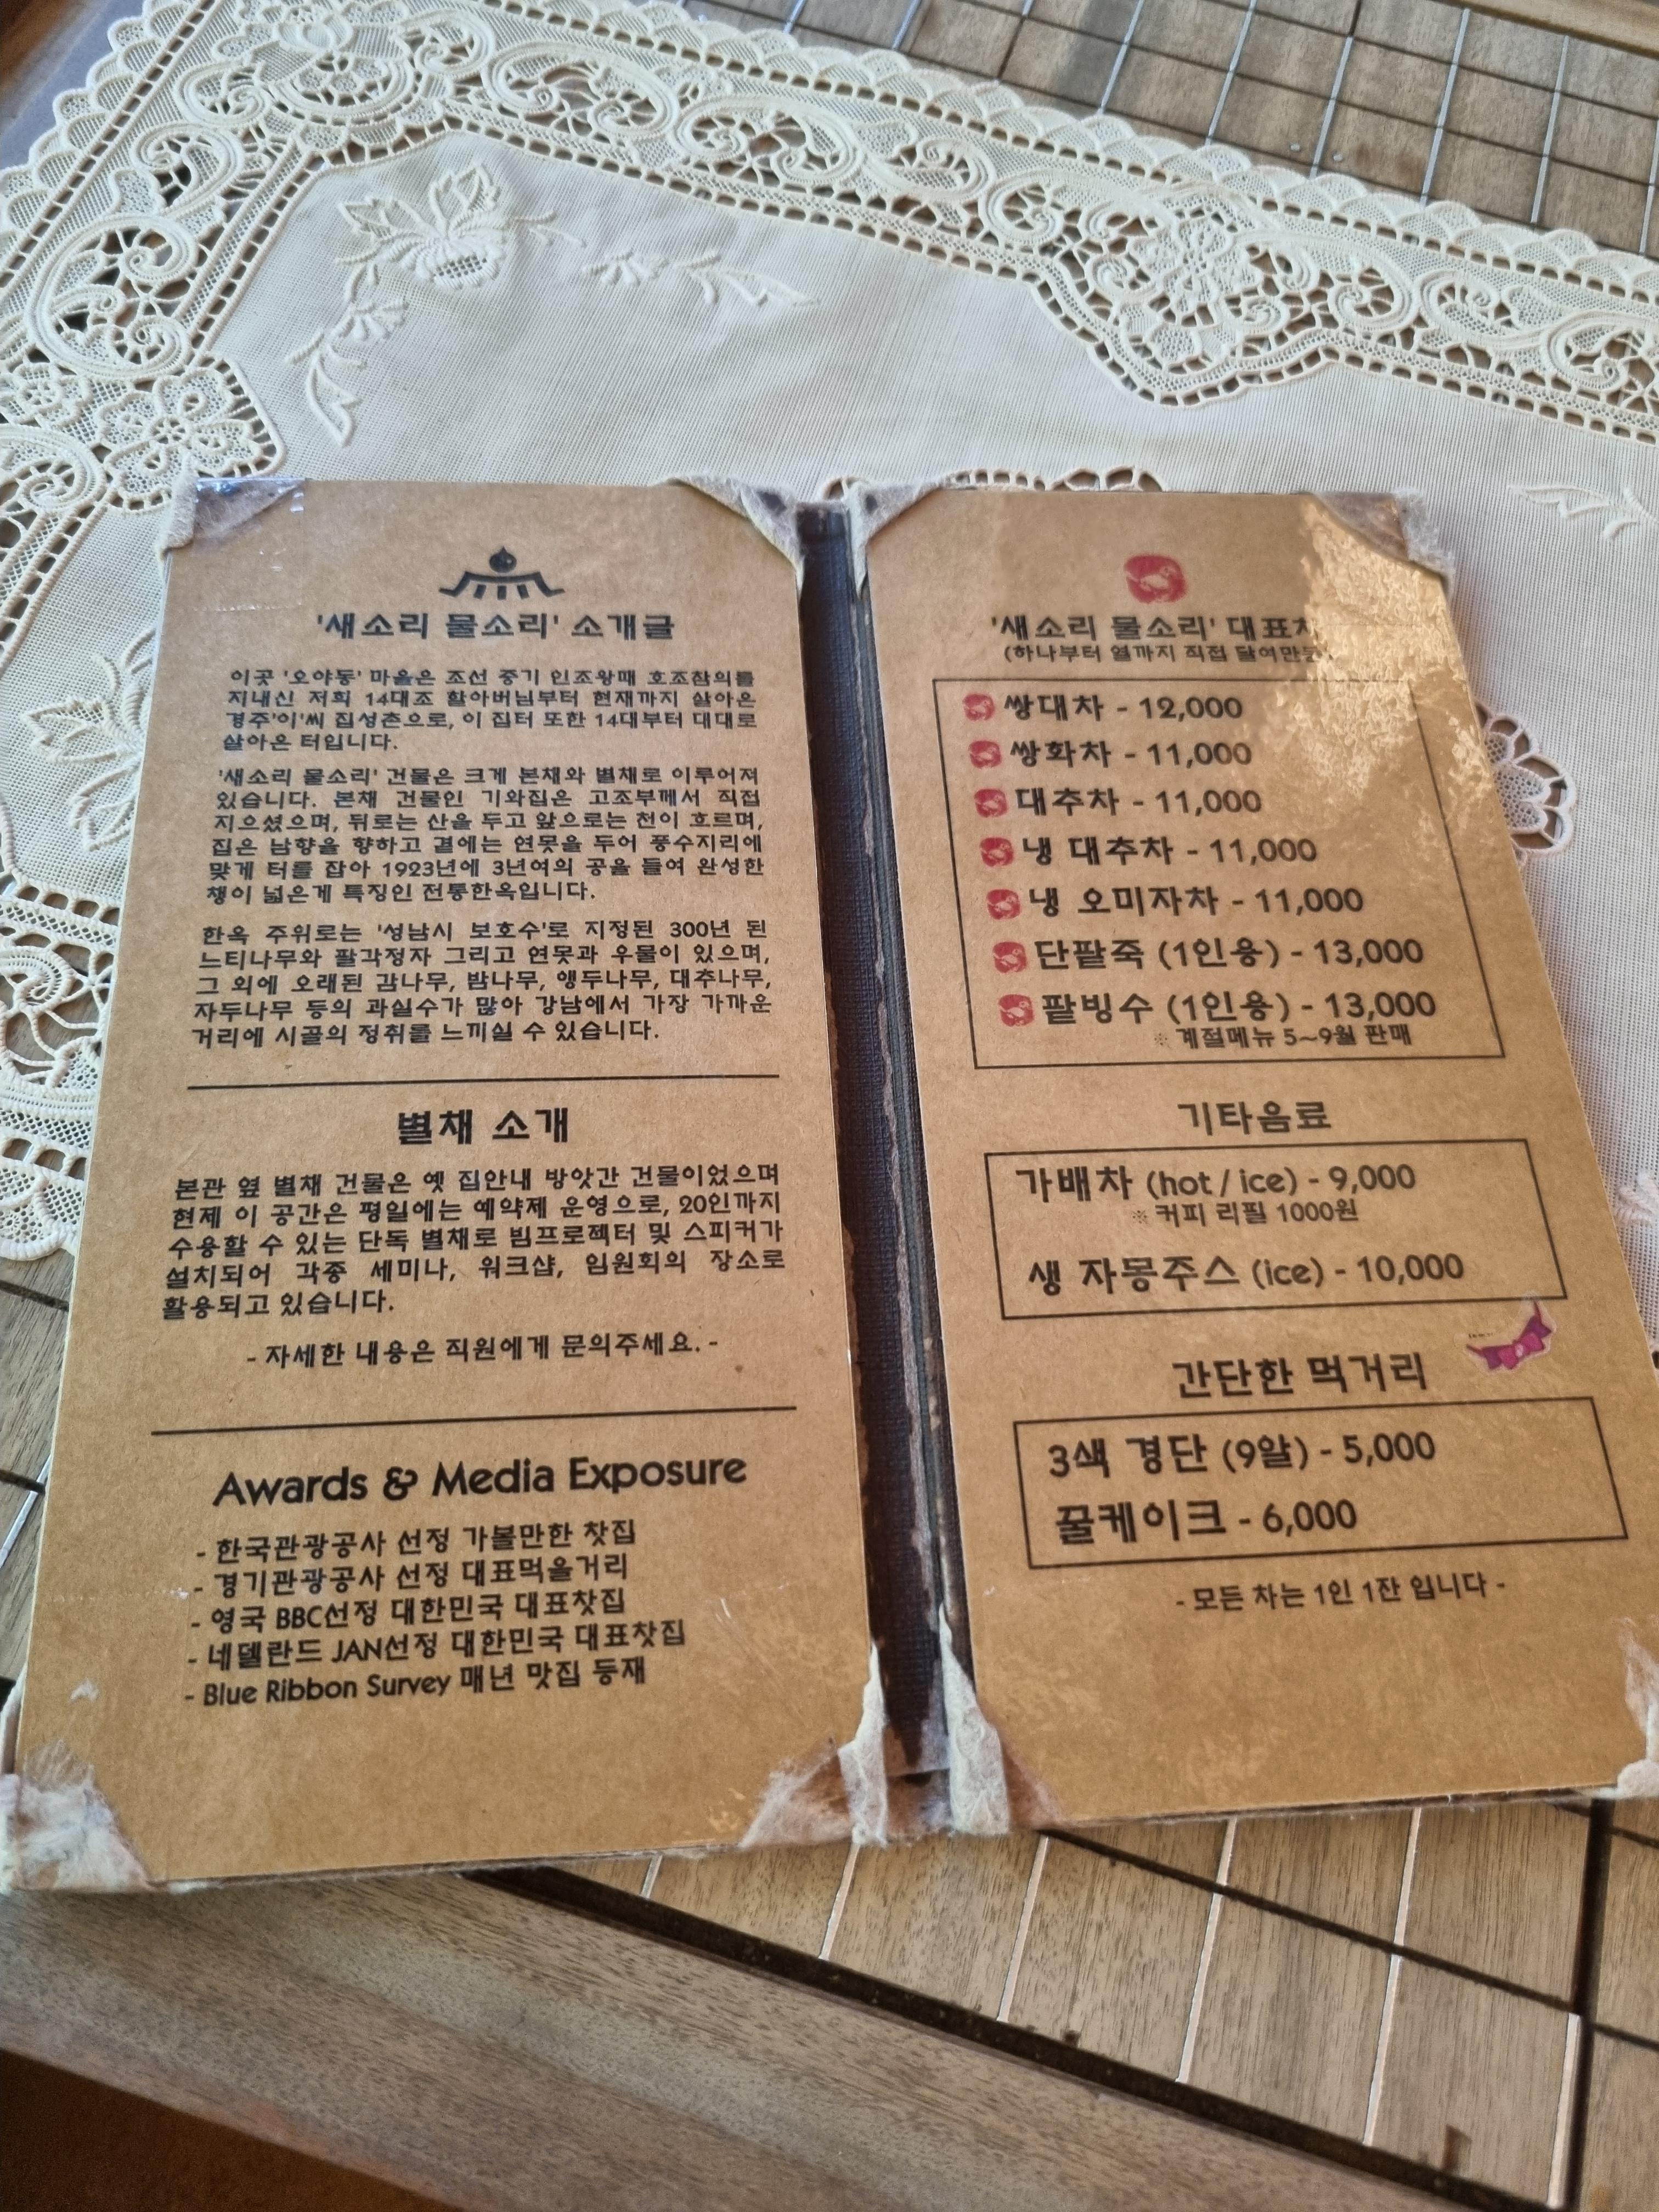 '새소리 물소리' 소개글
이곳 '오야동' 마을은 조선 중기 인조왕때 호조참의를
지내신 저희 14대조 할아버님부터 현재까지 살아온
경주'이'씨 집성촌으로, 이 집터 또한 14대부터 대대로
살아온 터입니다.
'새소리 물소리' 건물은 크게 본채와 별채로 이루어져
있습니다. 본채 건물인 기와집은 고조부께서 직접
지으셨으며, 뒤로는 산을 두고 앞으로는 천이 흐르며,
집은 남향을 향하고 곁에는 연못을 두어 풍수지리에
맞게 터를 잡아 1923년에 3년여의 공을 들여 완성한
챙이 넓은게 특징인 전통한옥입니다.
한옥 주위로는 '성남시 보호수'로 지정된 300년 된
느티나무와 팔각정자 그리고 연못과 우물이 있으며,
그 외에 오래된 감나무, 밤나무, 앵두나무, 대추나무,
자두나무 등의 과실수가 많아 강남에서 가장 가까운
거리에 시골의 정취를 느끼실 수 있습니다.
별채 소개
본관 옆 별채 건물은 옛 집안내 방앗간 건물이었으며
현제 이 공간은 평일에는 예약제 운영으로, 20인까지
수용할 수 있는 단독 별채로 빔프로젝터 및 스피커가
설치되어 각종 세미나, 워크샵, 임원회의 장소로
활용되고 있습니다.
- 자세한 내용은 직원에게 문의주세요. -
Awards & Media Exposure
- 한국관광공사 선정 가볼만한 찻집
- 경기관광공사 선정 대표먹을거리
- 영국 BBC선정 대한민국 대표찻집
- 네델란드 JAN선정 대한민국 대표찻집
- Blue Ribbon Survey 매년 맛집 등재
'새소리 물소리' 대표차
(하나부터 열까지 직접 달여만든
쌍대차 - 12,000
쌍화차 - 11,000
대추차 - 11,000
냉 대추차 - 11,000
냉 오미자차 - 11,000
단팥죽 (1인용) - 13,000
팥빙수 (1인용) - 13,000
※ 계절메뉴 5~9월 판매
기타음료
가배차 (hot / ice) - 9,000
※ 커피 리필 1000원
생 자몽주스 (ice) - 10,000
간단한 먹거리
3색 경단 (9알) - 5,000
꿀케이크 - 6,000
- 모든 차는 1인 1잔 입니다 -